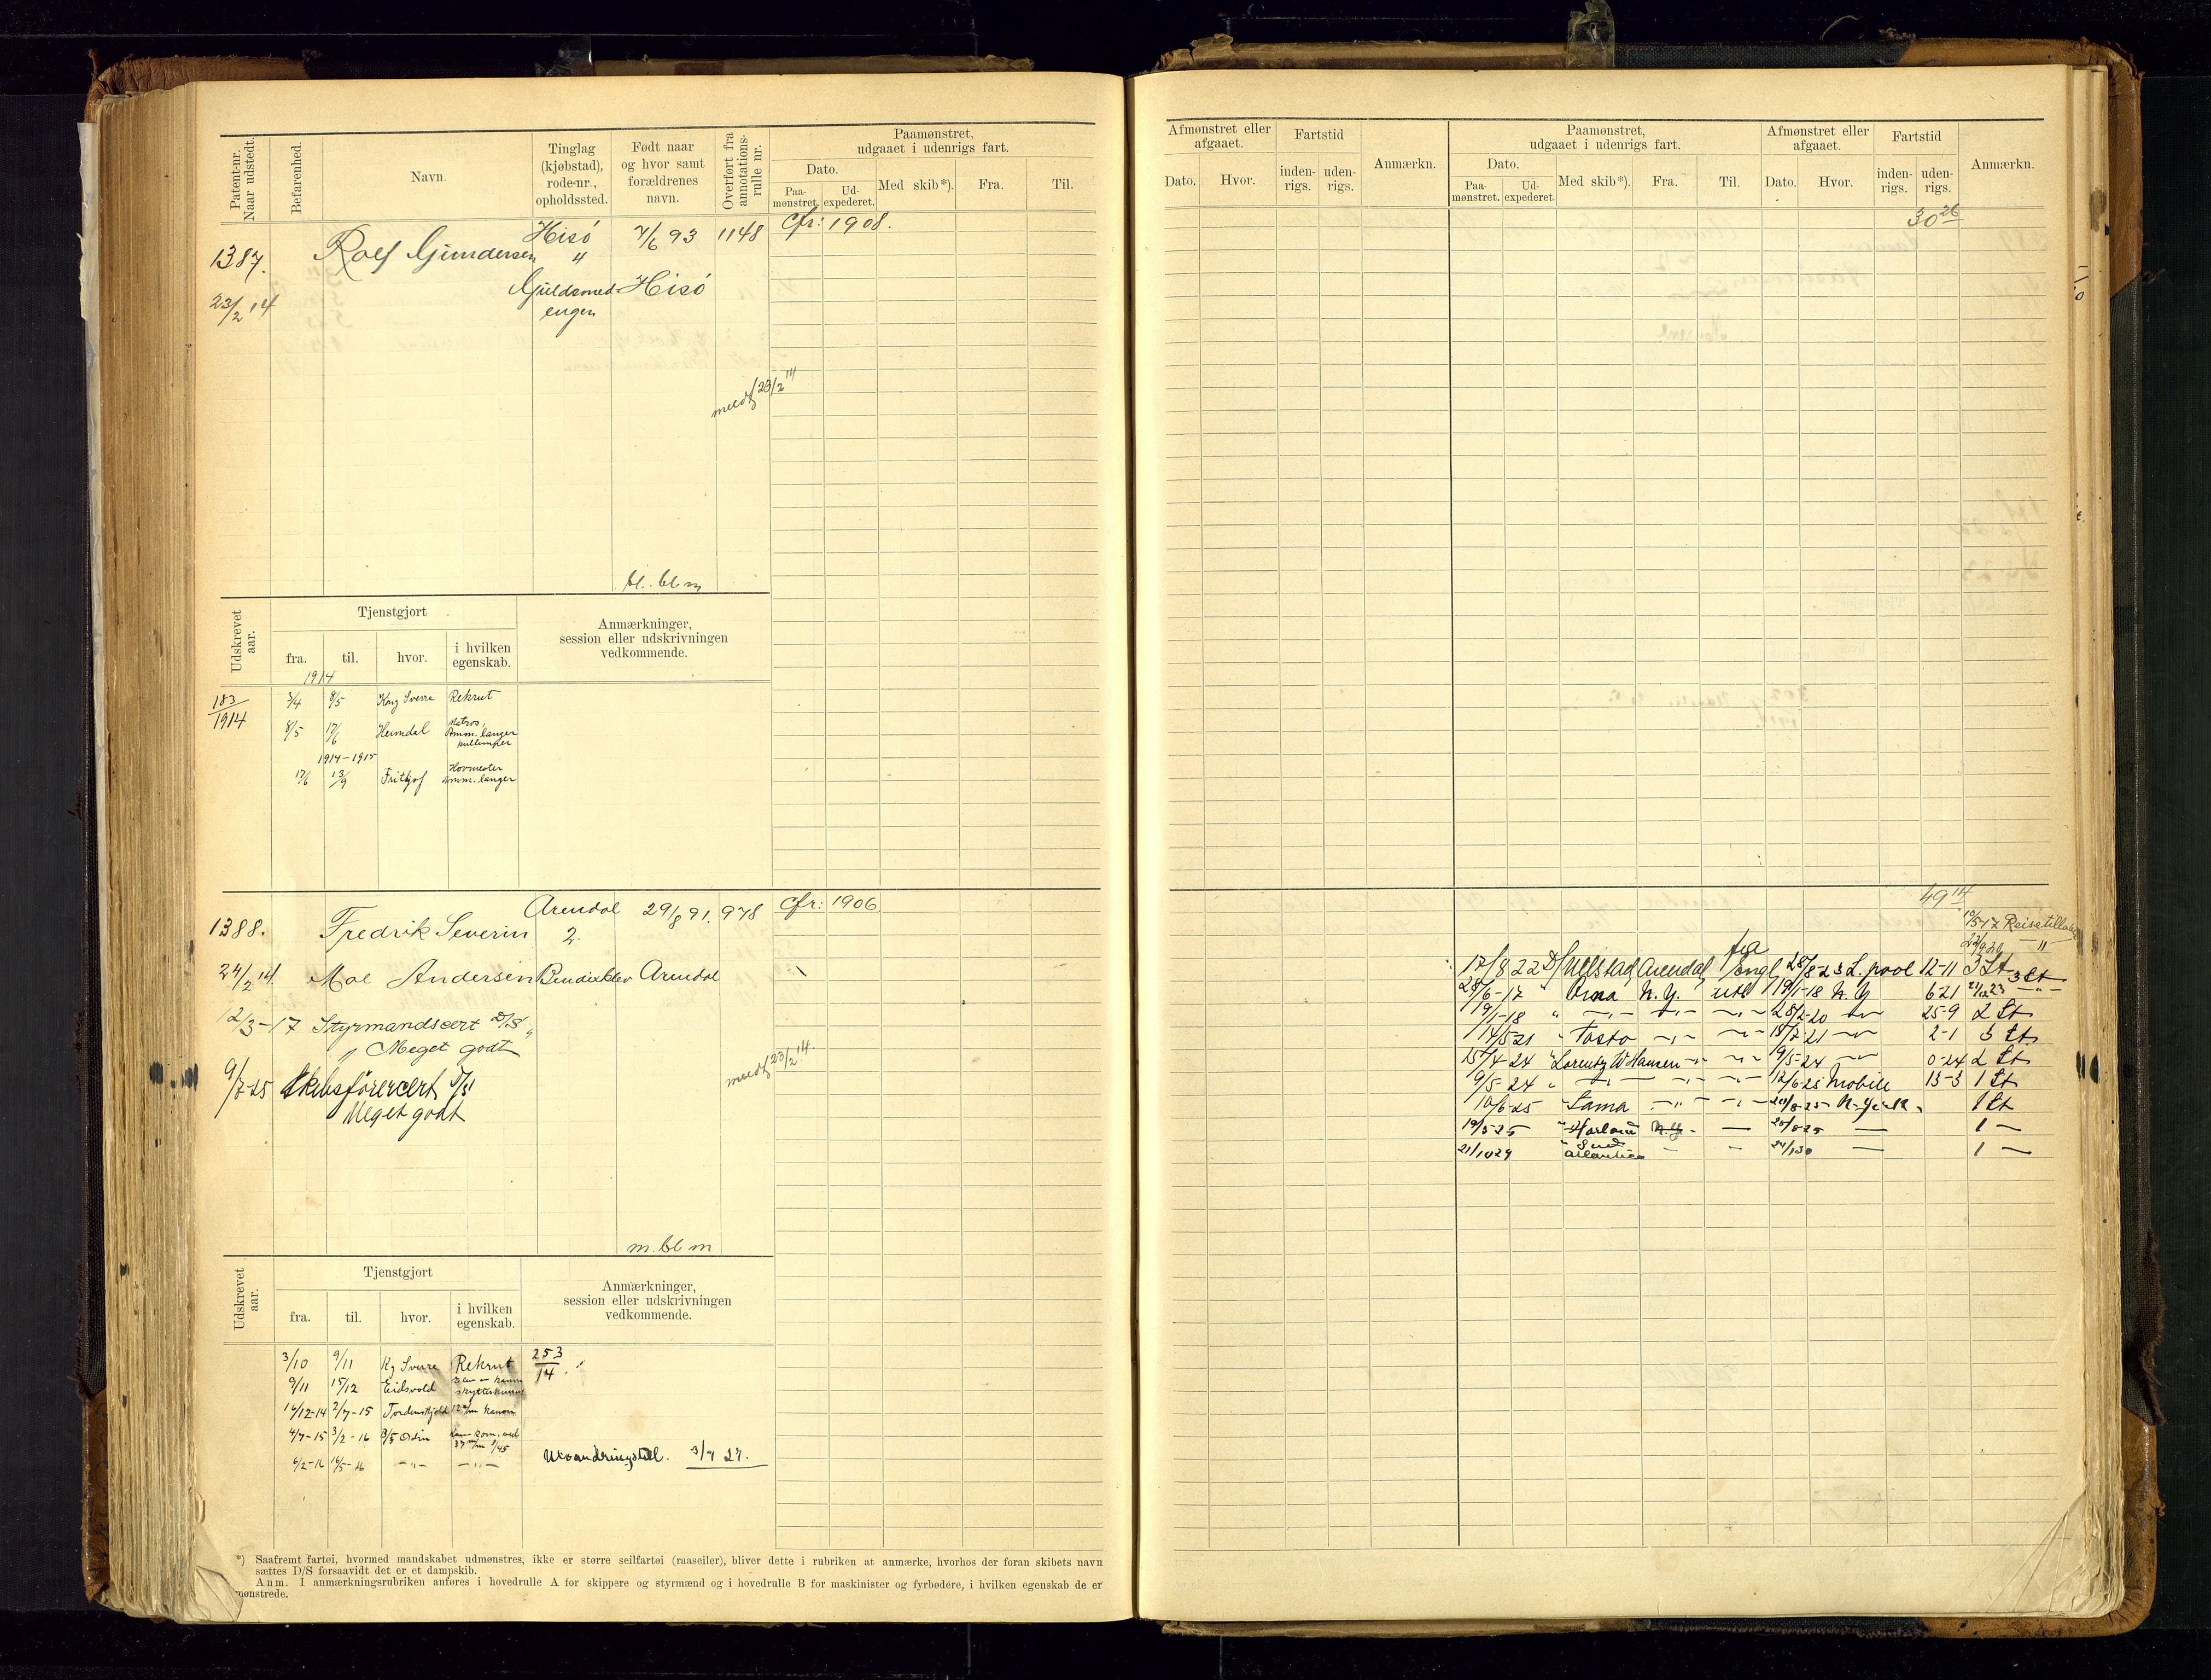 Patent-nr. Naar udstedt.
Befarenhed.
Navn.
Tinglag (kjøbstad), rode-nr., opholdssted.
Født naar og hvor samt forældrenes navn.
Overført fra annotations-rulle nr.
Paamønstret, udgaaet i udenrigs fart.
Dato.
Paa-mønstret.
Ud-expederet.
Med skib*).
Fra.
Til.
1387.
Rolf Gundersen
Hisö
"
7/6 93
1148
Cfr: 1908.
23/2 14
Guldsmed-
engen
Hisö
meldt 23/2 14
bl. bl m
Udskrevet aar.
Tjenstgjort
fra.
til.
hvor.
i hvilken egenskab.
Anmærkninger, session eller udskrivningen vedkommende.
1914
183/1914
3/4 8/5 Kong Sverre Rekrut
8/5 17/6 Heimdal Matros, Amm. langer
1914-1915
17/6 13/9 Fritjof Hovmester Amm. langer
1388.
Fredrik Severin
Arendal
2.
29/8 91.
978
Cfr: 1906.
24/2 14.
Moe Andersen
Bendiksklev
Arendal
12/3-17 Styrmandscert D/S
" Meget godt
meldt 23/2 14.
9/7-25 Skibsförercert D/S
Meget godt
m. bl m
Udskrevet aar.
Tjenstgjort
fra.
til.
hvor.
i hvilken egenskab.
Anmærkninger, session eller udskrivningen vedkommende.
3/10 9/11 Kg Sverre Rekrut 253/14.
9/11 15/12 Eidsvold
16/12-14 2/7-15 Tordenskjold 12 c/m kanon
4/7-15 3/2-16 P/S Odin
6/2-16 16/5-16 -"- -"-
Utvandringstill. 3/9 27.
*) Saafremt fartøi, hvormed mandskabet udmønstres, ikke er større seilfartøi (raaseiler), bliver dette i rubriken at anmærke, hvorhos der foran skibets navn
sættes D/S forsaavidt det er et dampskib.
Anm. I anmærkningsrubriken anføres i hovedrulle A for skippere og styrmænd og i hovedrulle B for maskinister og fyrbødere, i hvilken egenskab de er
mønstrede.
Afmønstret eller afgaaet.
Dato.
Hvor.
Fartstid
inden-rigs.
uden-rigs.
Anmærkn.
Paamønstret, udgaaet i udenrigs fart.
Dato.
Paa-mønstret.
Ud-expederet.
Med skib*).
Fra.
Til.
Afmønstret eller afgaaet.
Dato.
Hvor.
Fartstid
inden-rigs.
uden-rigs.
Anmærkn.
30 26
49 14
10/5-17 Reisetillat.
22/9 20 "
17/8 22 D/S Ullstad Arendal fra Engl 28/8-23 L.pool 12-11 3 St 3 St
28/6-17 " N.Y. utl 19/1-18 N.Y 6 21 21/12 23 -"-
19/1-18 " -"- -"- -"- 28/2-20 -"- 25-9 2 St
14/5-21 " Tosto -"- -"- 15/7-21 -"- 2-1 3 St
15/4-24 " Lorentz W Hansen -"- -"- 9/5-24 -"- 0-24 2 St
9/5-24 " -"- -"- -"- 12/6-25 Mobile 13-3 1 St
10/6-25 " Lama -"- -"- 20/8-25 N-York 1 St
19/5 25 " N.Y. - — 20/8 25 — 1 —
21/10 29 " Sud Atlantico - - 24/1 30 — 1 —